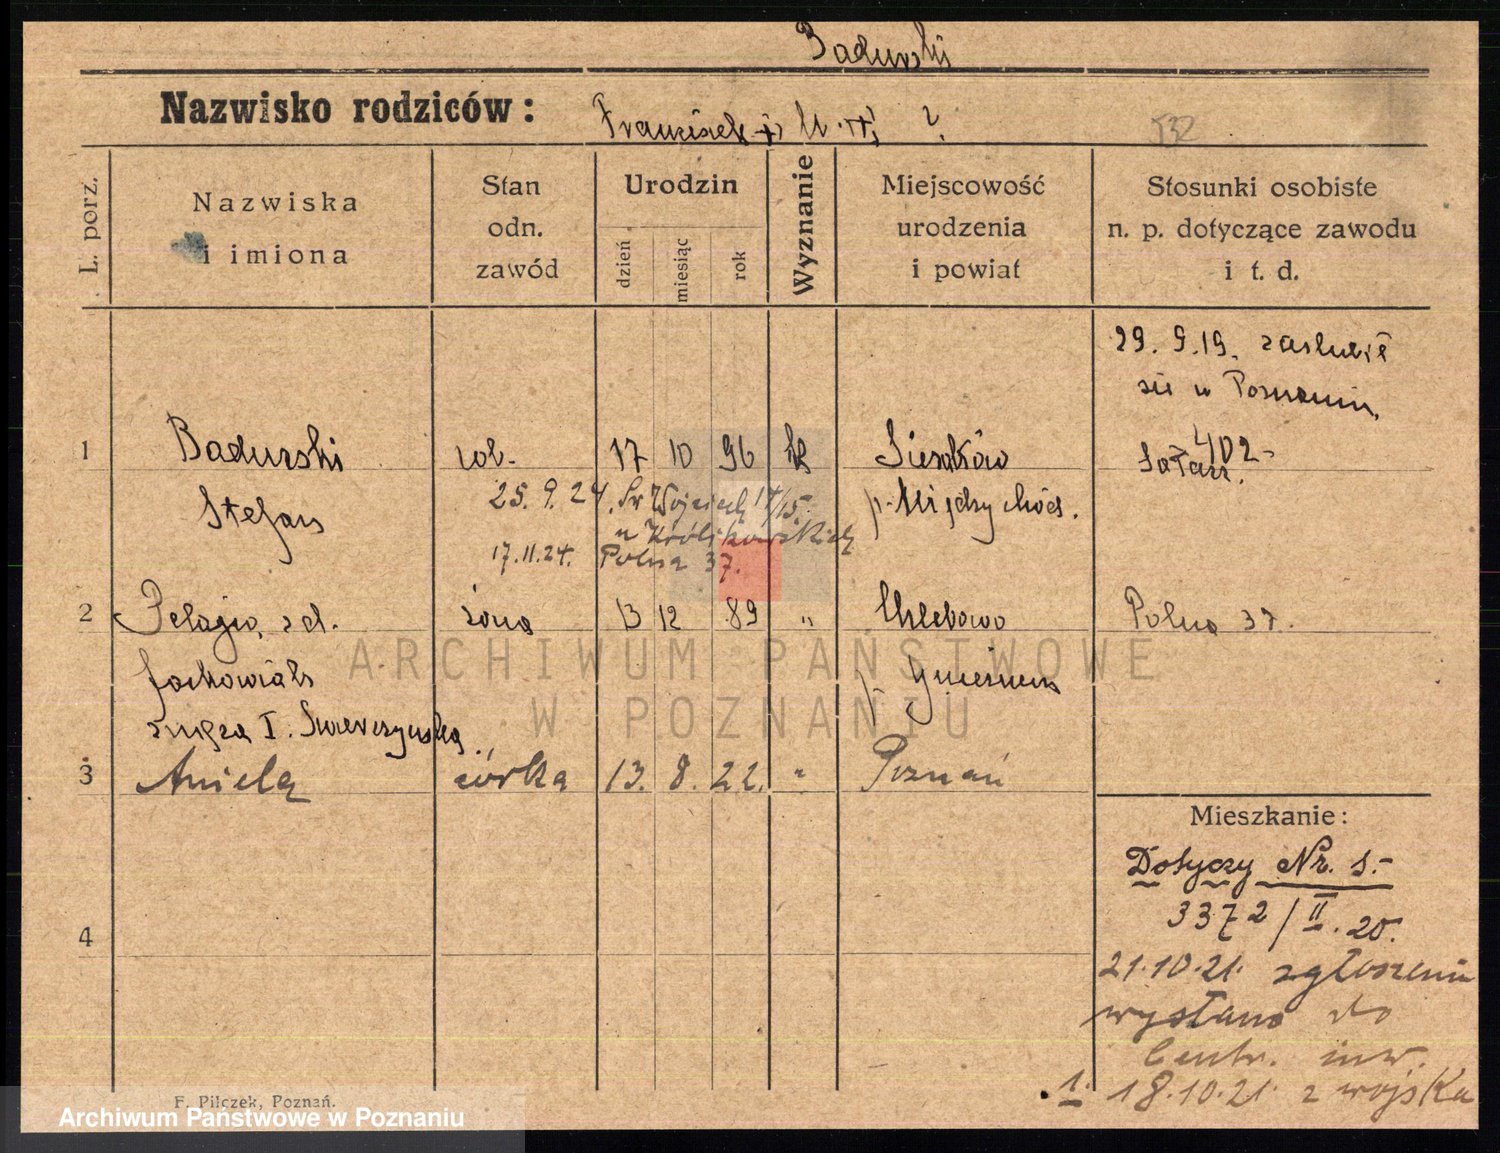 Badurski
Nazwisko rodziców: Franciszek
532
L. porz.
Nazwiska i imiona
Stan odn. zawód
Urodzin
dzień
miesiąc
rok
Wyznanie
Miejscowość urodzenia i powiat
Stosunki osobiste n. p. dotyczące zawodu i t. d.
29. 9. 19. zaslubił
sie w Poznaniu,
402-
1 Badurski rob. 17 10 96 k Sieraków
Stefan p. Międzychód.
25. 9. 24. Św Wojciech 14/15.
u Królikowskich
17.11.24. Polna 37.
2 Pelagja, zd. żona 13 12 89 " Chlebowo Polna 37.
Jackowiak p.
zmęża I.
3 Aniela córka 13. 8. 22. " Poznań
Mieszkanie:
Dotyczy Nr. 1.-
3372/II. 20.
4
21.10.21. zgłoszenie
wysłano do
Centr. inw.
1. 18.10.21. z wojska
F. Pilczek, Poznań.
ARCHIWUM PAŃSTWOWE
W POZNANIU
Archiwum Państwowe w Poznaniu